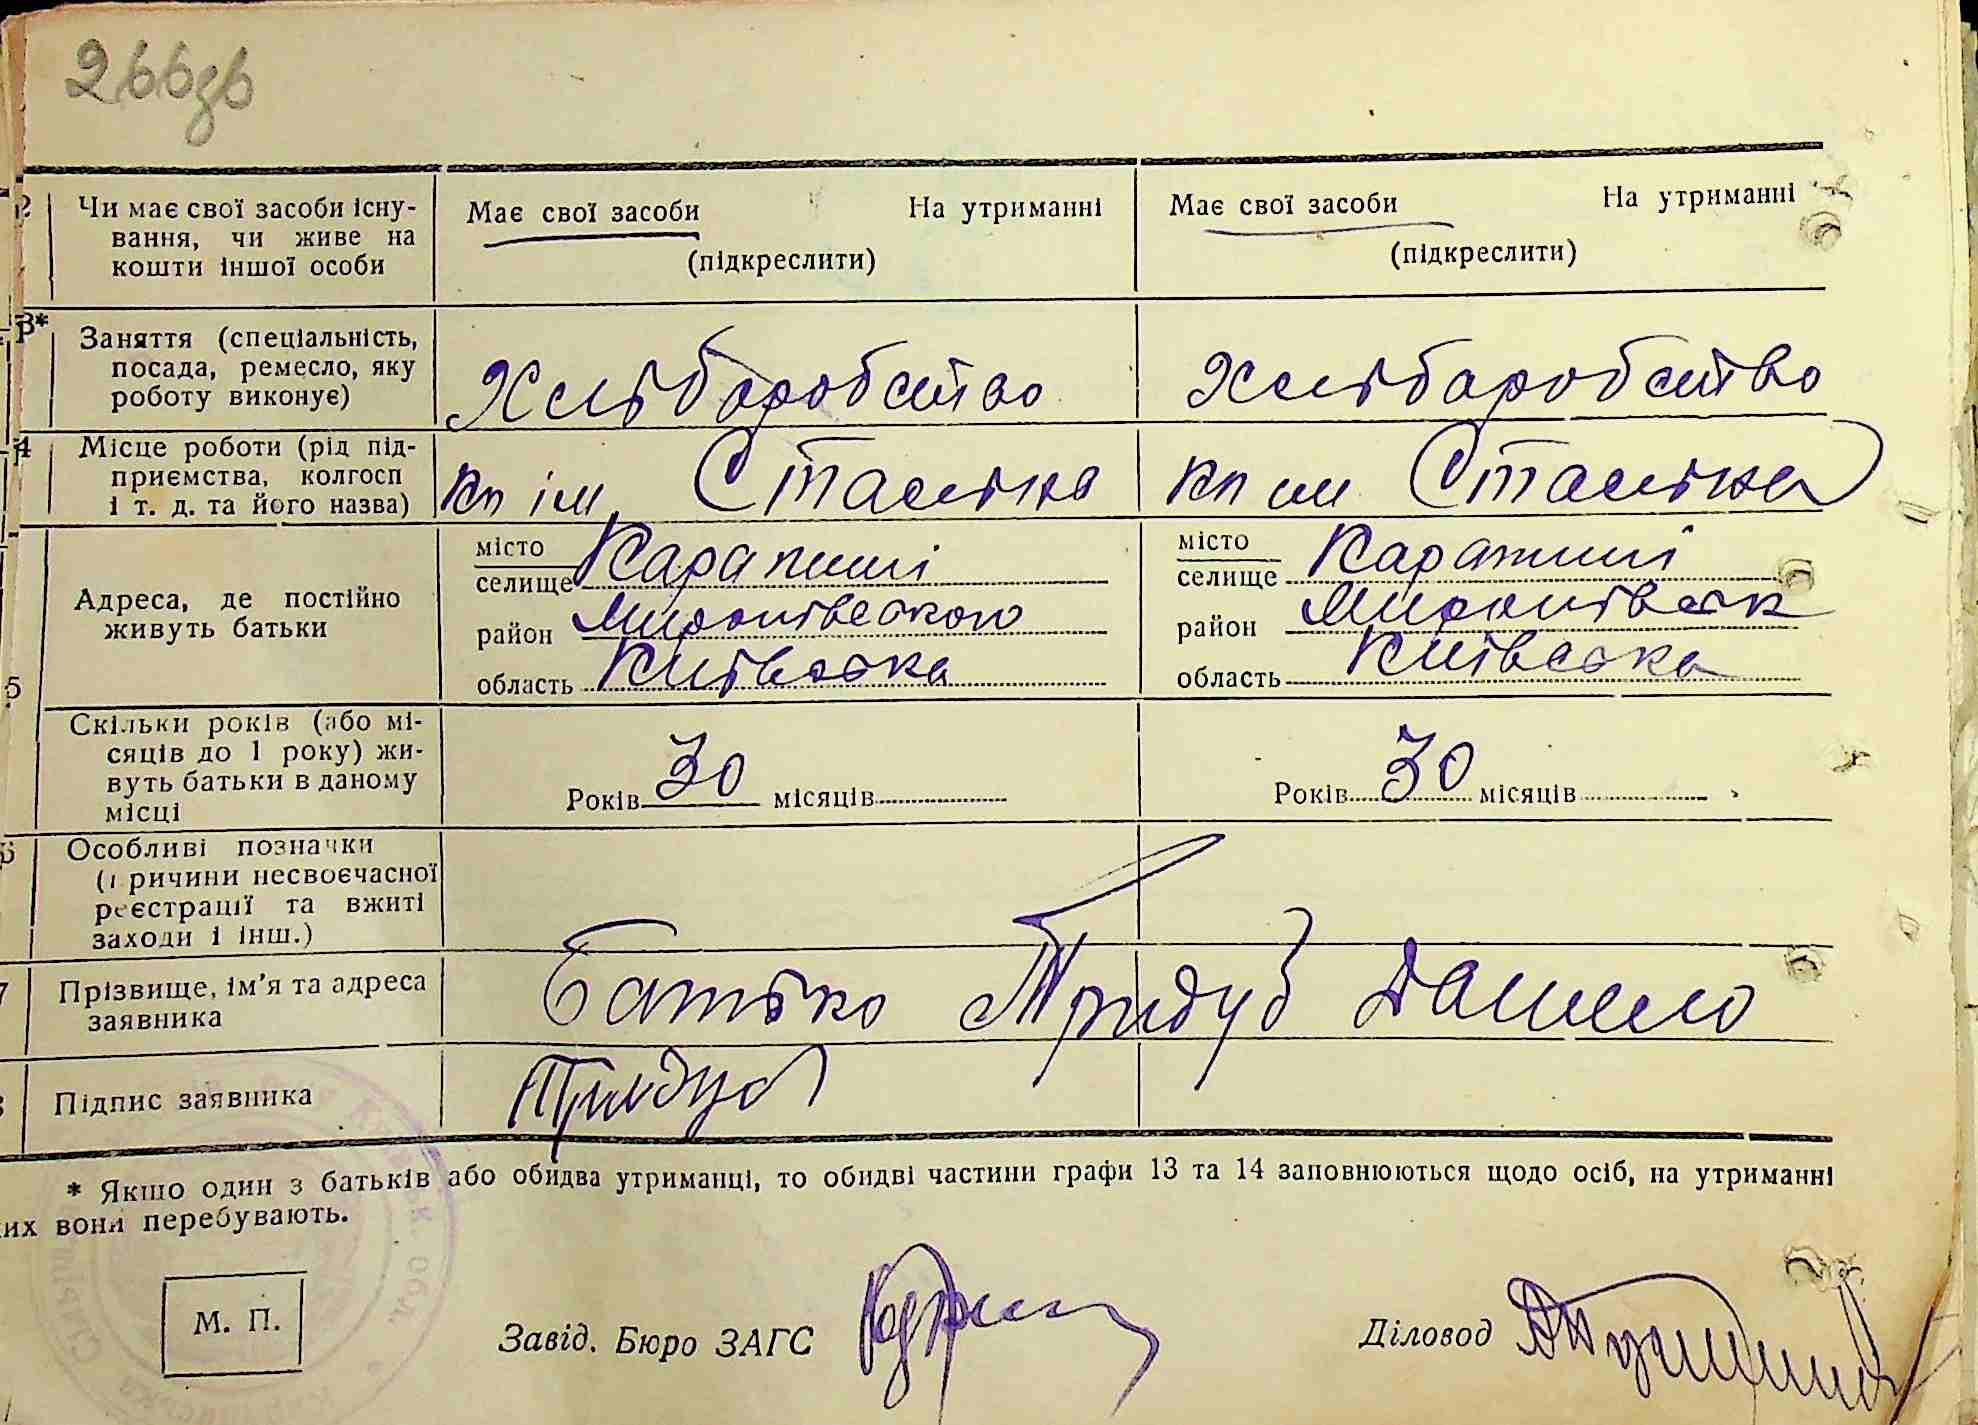 266зв
2 Чи має свої засоби існу-
вання, чи живе на
кошти іншої особи
Має свої засоби На утриманні
(підкреслити)
Має свої засоби На утриманні
(підкреслити)
3* Заняття (спеціальність,
посада, ремесло, яку
роботу виконує)
Хліборобство
Хліборобство
4 Місце роботи (рід під-
приємства, колгосп
і т. д. та його назва)
кп ім Сталіна
кп ім Сталіна
5 Адреса, де постійно
живуть батьки
місто
селище Карапиші
район Миронівського
область Київська
місто
селище Карапиші
район Миронівськ
область Київська
Скільки років (або мі-
сяців до 1 року) жи-
вуть батьки в даному
місці
Років 30 місяців
Років 30 місяців
6 Особливі позначки
(причини несвоєчасної
реєстрації та вжиті
заходи і інш.)
7 Прізвище, ім'я та адреса
заявника
Батько Тридуб Данило
8 Підпис заявника
Тридуб
* Якшо один з батьків або обидва утриманці, то обидві частини графи 13 та 14 заповнюються щодо осіб, на утриманні
их вони перебувають.
М. П.
Завід. Бюро ЗАГС
Діловод